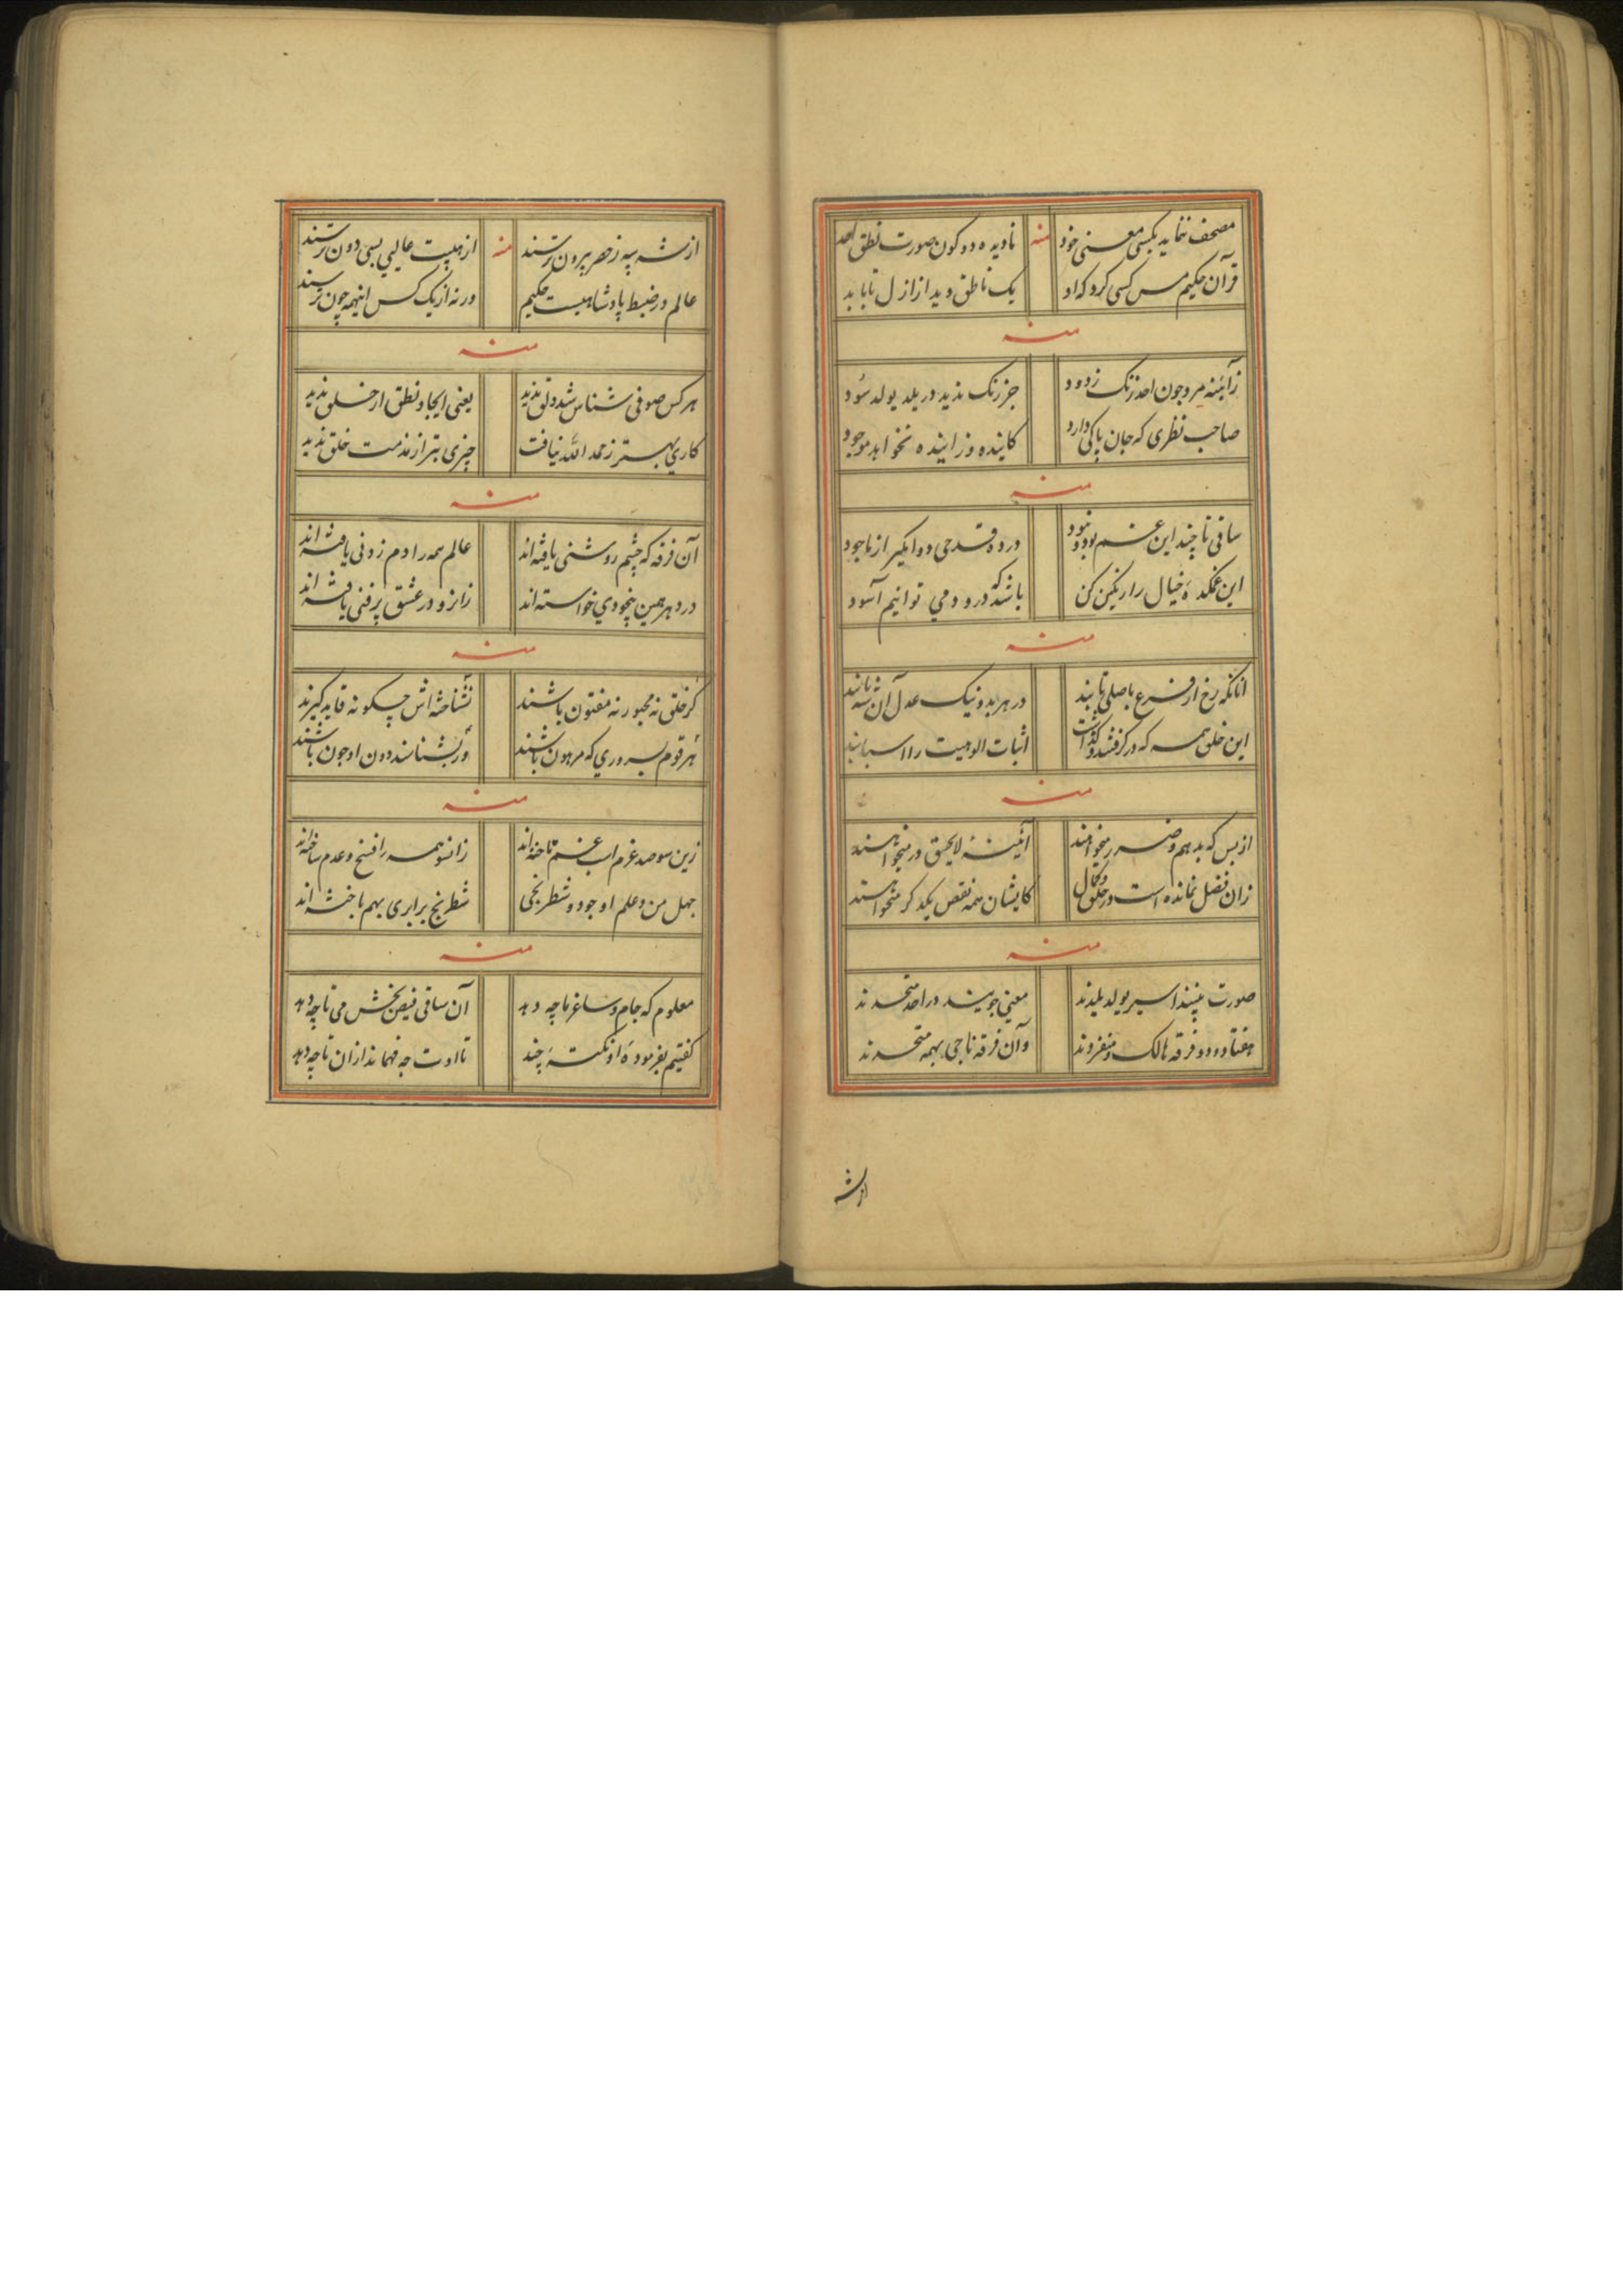 مصحف ننماید بکسی معنی خود منه نادیده دو کون صورت نطق احد
قرآن حکیم مس کسی کرد که او یک ناطق دید از ازل تا بابد
منه
زآیینه مرد چون احد زنک زدود جز زنک ندید در یلد یولد سود
صاحب نظری که جان پاکی دارد کاینده و زاینده نخواهد موجود
منه
ساقی تا چند این غم بود و نبود در ده قدحی دو ایکه از ما جود
این غمکده خیال را رنکین کن باشد که در و دمی توانیم آسود
منه
انانکه رخ از فرع باصلی تابند در هر بد و نیک عدل آن شه یابند
این خلق همه که در کرفتند و کذاشت اثبات الوهیت را اسبابند
منه
از بس که بد هم و ضرر میخواهند آئینه لایحق در میخواهند
زان فضل نمانده است در خلق و کمال کایشان همه نقص یکدکر میخواهند
منه
صورت بینند اسیر یولد یلدند معنی جویند در احد متحدند
هفتاد و دو فرقه هالک و منفردند وآن فرقه ناجی بهمه متحدند
از شه
از شه سپه ز حصر بیرون ترسند منه از هیبت عالیی بسی دون ترسند
عالم در ضبط پادشاهیست حکیم ورنه از یک کس اینهمه چون ترسند
منه
هر کس صوفی شناس شد دلق ندید یعنی ایجاد نطق از خلق ندید
کاری بهتر ز حمد الله نیافت چیزی بتر از مذمت خلق ندید
منه
آن فرقه که چشم روشنی یافته‌اند عالم همه را دم زدنی یافته‌اند
در دهر همین بیخودی خواسته‌اند زانرو در عشق پر فنی یافته‌اند
منه
کر خلق نه مجبور نه مفتون باشند نشناخته‌اش چکونه قاید کیرند
هر قوم بسروری که مرهون باشند ور بشناسند دون او چون باشند
منه
زین سو صد غرم اسب عزم تاخته‌اند زانسو همه را فسخ و عدم ساخته‌اند
جهل من و علم او چو دو شطرنجی شطرنج برابری بهم باخته‌اند
منه
معلوم که جام و ساغر ما چه دهد آن ساقی فیض بخش می تا چه دهد
کفتیم بفرموده او نکته چند تا اوت چه فهماند از آن تا چه دهد